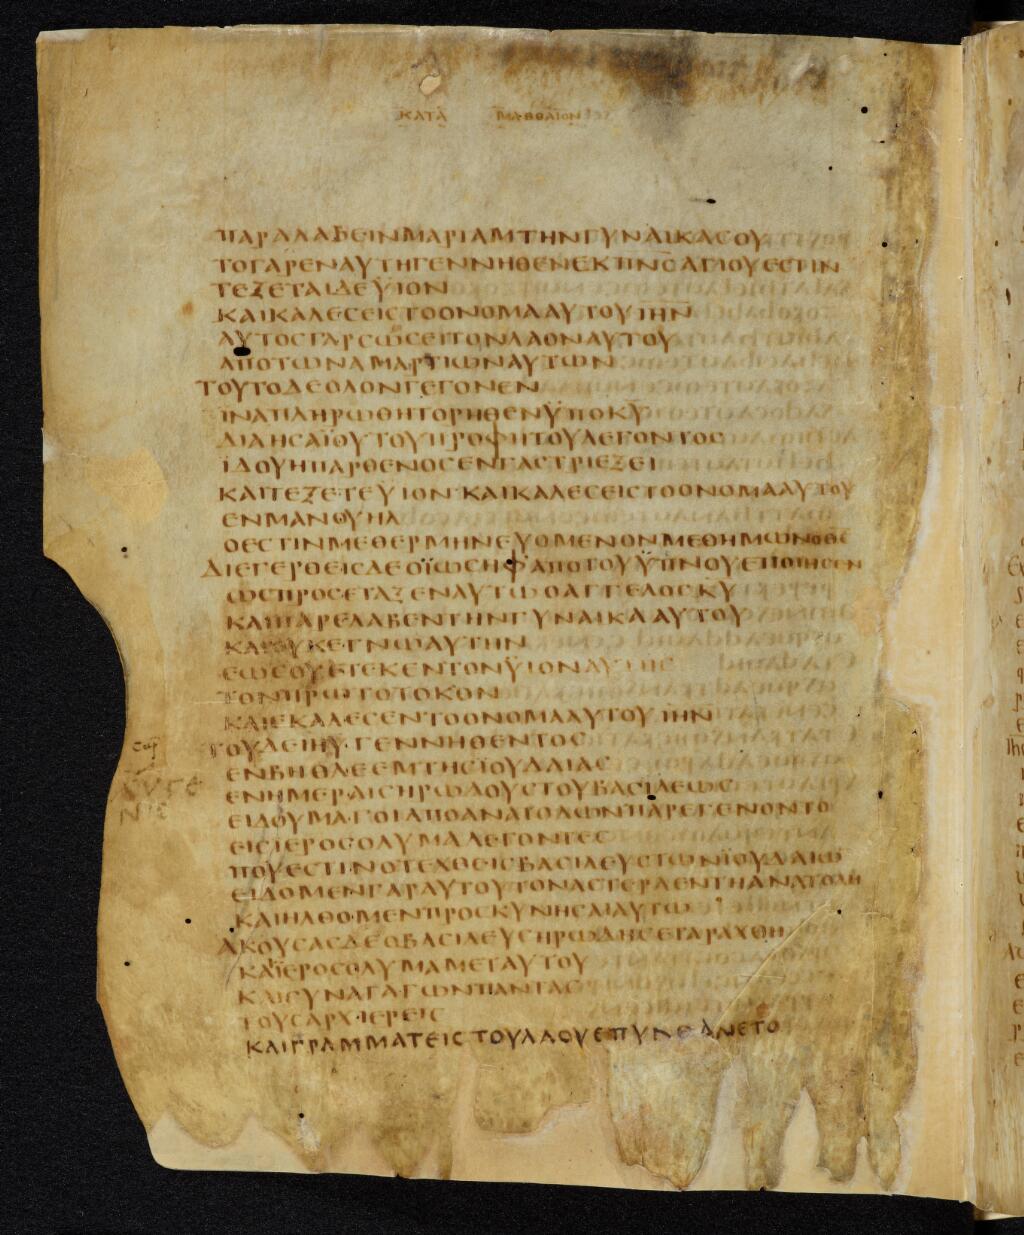 ΚΑΤΑ ΜΑΘΘΑΙΟΝ
ΠΑΡΑΛΑΒΕΙΝΜΑΡΙΑΜΤΗΝΓΥΝΑΙΚΑΣΟΥ
ΤΟΓΑΡΕΝΑΥΤΗΓΕΝΝΗΘΕΝΕΚΠΝΣΑΓΙΟΥΕΣΤΙΝ
ΤΕΞΕΤΑΙΔΕΥΙΟΝ
ΚΑΙΚΑΛΕΣΕΙΣΤΟΟΝΟΜΑΑΥΤΟΥΙΗΝ
ΑΥΤΟΣΓΑΡΣΩΣΕΙΤΟΝΛΑΟΝΑΥΤΟΥ
ΑΠΟΤΩΝΑΜΑΡΤΙΩΝΑΥΤΩΝ
ΤΟΥΤΟΔΕΟΛΟΝΓΕΓΟΝΕΝ
ΪΝΑΠΛΗΡΩΘΗΤΟΡΗΘΕΝΫΠΟΚΥ
ΔΙΑΗΣΑΪΟΥΤΟΥΠΡΟΦΗΤΟΥΛΕΓΟΝΤΟΣ
ΪΔΟΥΗΠΑΡΘΕΝΟΣΕΝΓΑΣΤΡΙΕΞΕΙ
ΚΑΙΤΕΞΕΤΕΥΙΟΝΚΑΙΚΑΛΕΣΕΙΣΤΟΟΝΟΜΑΑΥΤΟΥ
ΕΝΜΑΝΟΥΗΛ
ΟΕΣΤΙΝΜΕΘΕΡΜΗΝΕΥΟΜΕΝΟΝΜΕΘΗΜΩΝΟΘΣ
ΔΙΕΓΕΡΘΕΙΣΔΕΟΪΩΣΗΦΑΠΟΤΟΥΫΠΝΟΥΕΠΟΙΗΣΕΝ
ΩΣΠΡΟΣΕΤΑΞΕΝΑΥΤΩΟΑΓΓΕΛΟΣΚΥ
ΚΑΙΠΑΡΕΛΑΒΕΝΤΗΝΓΥΝΑΙΚΑΑΥΤΟΥ
ΚΑΙΟΥΚΕΓΝΩΑΥΤΗΝ
ΕΩΣΟΥΕΤΕΚΕΝΤΟΝΫΙΟΝΑΥΤΗΣ
ΤΟΝΠΡΩΤΟΤΟΚΟΝ
ΚΑΙΕΚΑΛΕΣΕΝΤΟΟΝΟΜΑΑΥΤΟΥΙΗΝ
ΤΟΥΔΕΙΗΥΓΕΝΝΗΘΕΝΤΟΣ
ΕΝΒΗΘΛΕΕΜΤΗΣΪΟΥΔΑΙΑΣ
ΕΝΗΜΕΡΑΙΣΗΡΩΔΟΥΣΤΟΥΒΑΣΙΛΕΩΣ
ΕΙΔΟΥΜΑΓΟΙΑΠΟΑΝΑΤΟΛΩΝΠΑΡΕΓΕΝΟΝΤΟ
ΕΙΣΙΕΡΟΣΟΛΥΜΑΛΕΓΟΝΤΕΣ
ΠΟΥΕΣΤΙΝΟΤΕΧΘΕΙΣΒΑΣΙΛΕΥΣΤΩΝΪΟΥΔΑΙΩ
ΕΙΔΟΜΕΝΓΑΡΑΥΤΟΥΤΟΝΑΣΤΕΡΑΕΝΤΗΑΝΑΤΟΛΗ
ΚΑΙΗΛΘΟΜΕΝΠΡΟΣΚΥΝΗΣΑΙΑΥΤΩ
ΑΚΟΥΣΑΣΔΕΟΒΑΣΙΛΕΥΣΗΡΩΔΗΣΕΤΑΡΑΧΘΗ
ΚΑΪΕΡΟΣΟΛΥΜΑΜΕΤΑΥΤΟΥ
ΚΑΙΣΥΝΑΓΑΓΩΝΠΑΝΤΑΣ
ΤΟΥΣΑΡΧΙΕΡΕΙΣ
ΚΑΙΓΡΑΜΜΑΤΕΙΣΤΟΥΛΑΟΥΕΠΥΝΘΑΝΕΤΟ